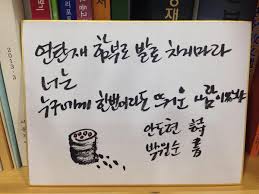 연탄재 함부로 발로 차지마라
너는
누구에게 한번이라도 뜨거운 사람이었느냐
안도현 詩
박원순 書